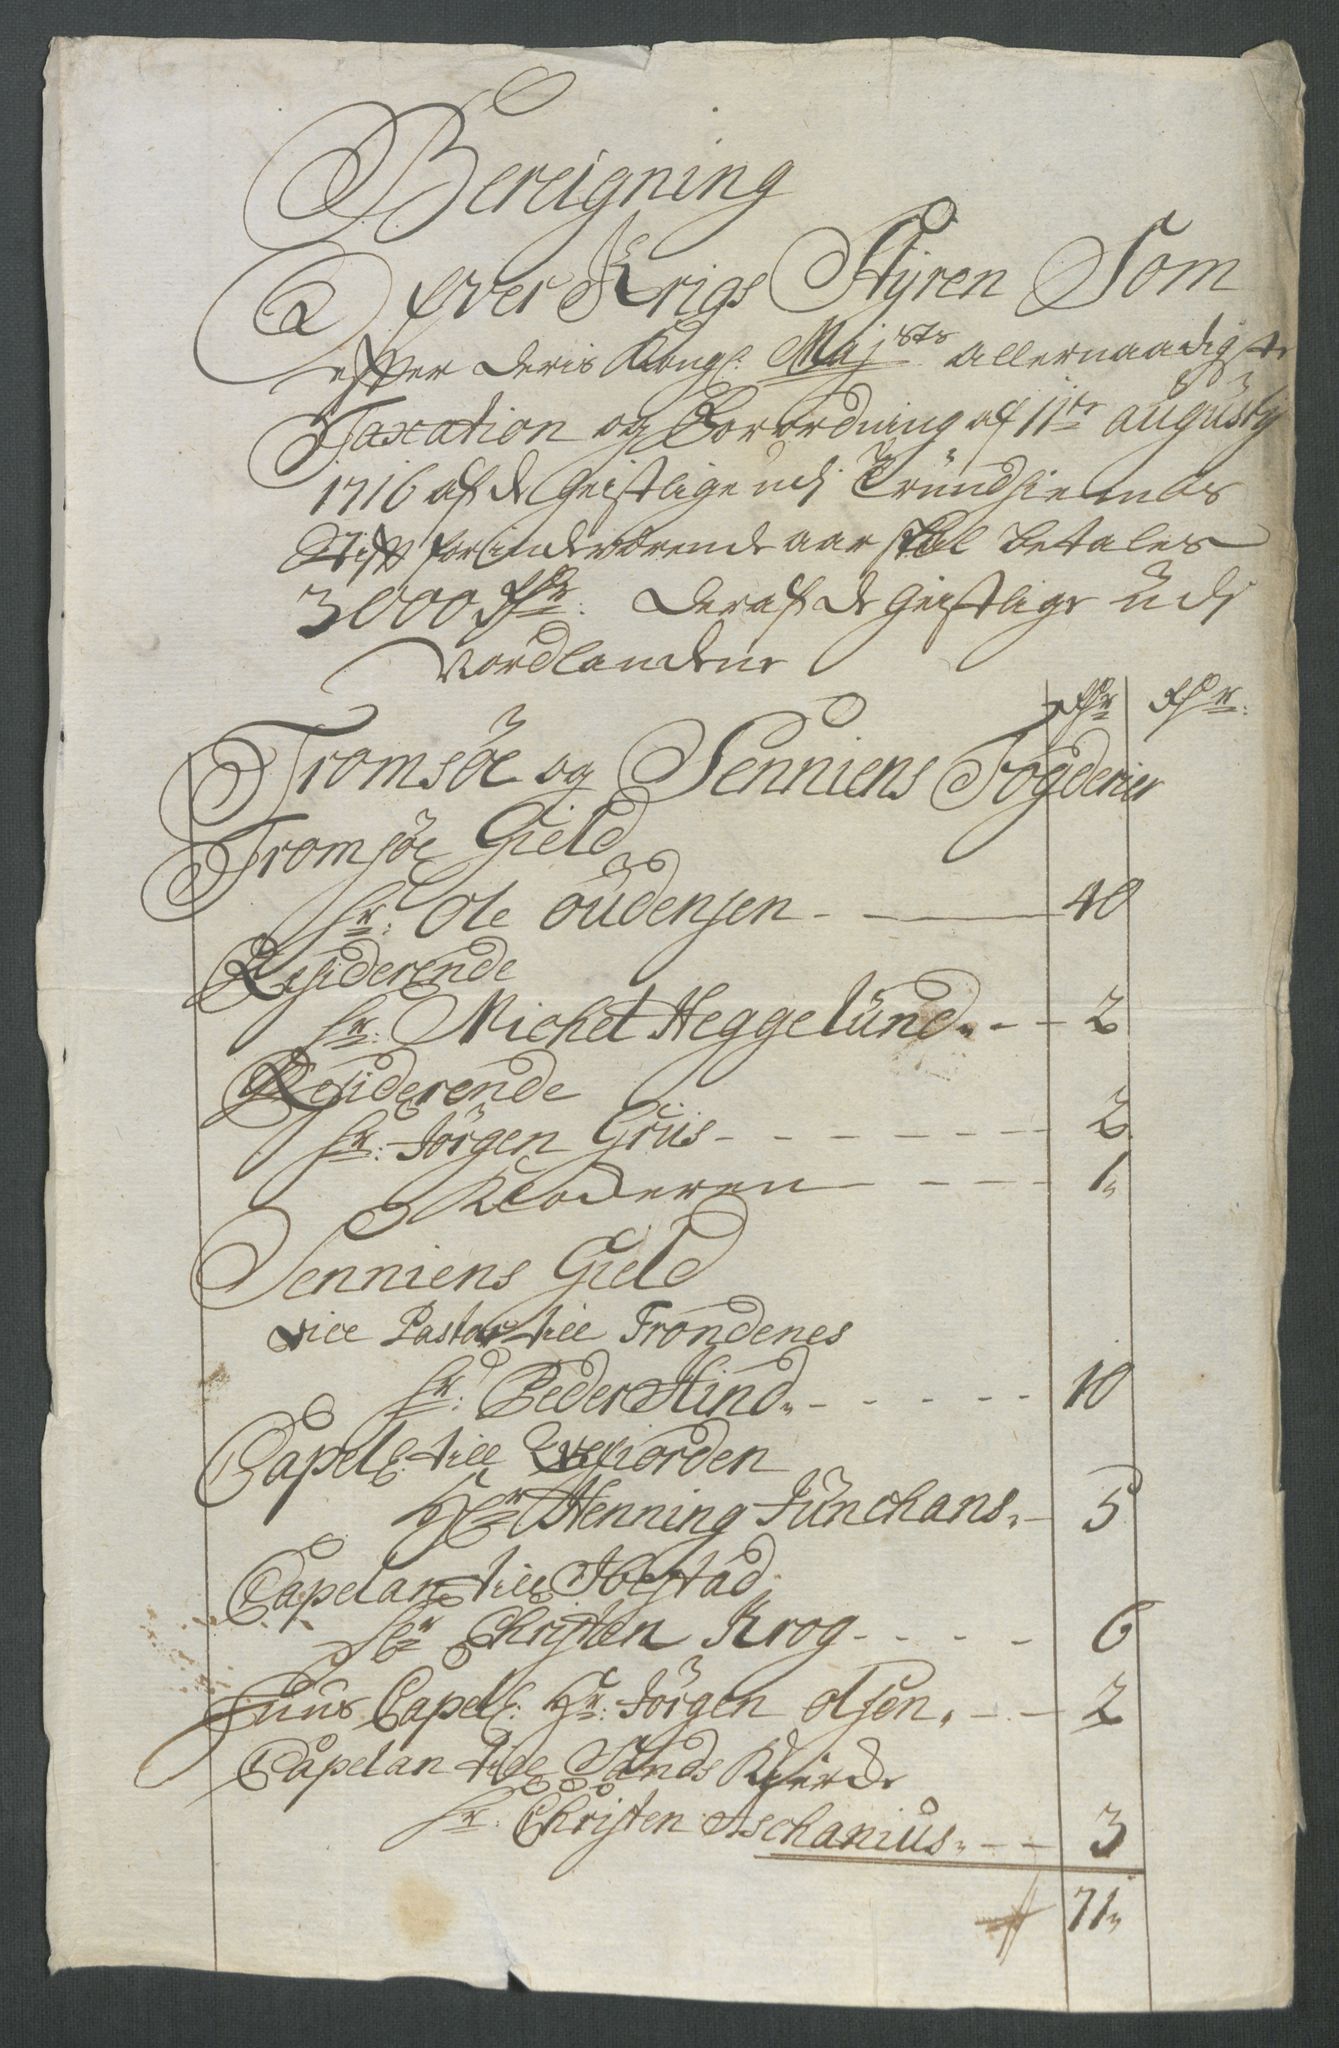 Bereigning
Ofver Krigs Styren Som
efter deris Kongl: Majsts allernaadigste
Taxation og Forordning af 11te augusty
1716 af de Geistlige udj Trundhiembs
Stift for indeværende aar skal betales
3000 Rdr: deraf de Geistlige udj
Nordlandene
Rdr Rdr:
Tromsöe og Senniens Fogderier
Tromsöe Gield
Hr: Ole Oudensen - 40
Residerende
Hr: Michel Heggelund - - 2
Residerende
Hr: Jörgen Grüs - - - - - - - 2
Klockeren - - - - 1
Senniens Gield
vice Pastor till Trondenes
Hr: Peder Hind - - - - - 10
Capel: till Qvefiorden
Hr Henning Junchans - 5
Capelan till Ibestad
Hr Christen Krog - - - - 6
Huus Capel: Hr: Jörgen Olsen - - 2
Capelan till Sands Kierche
Hr: Christen Aschanius - - 3
71